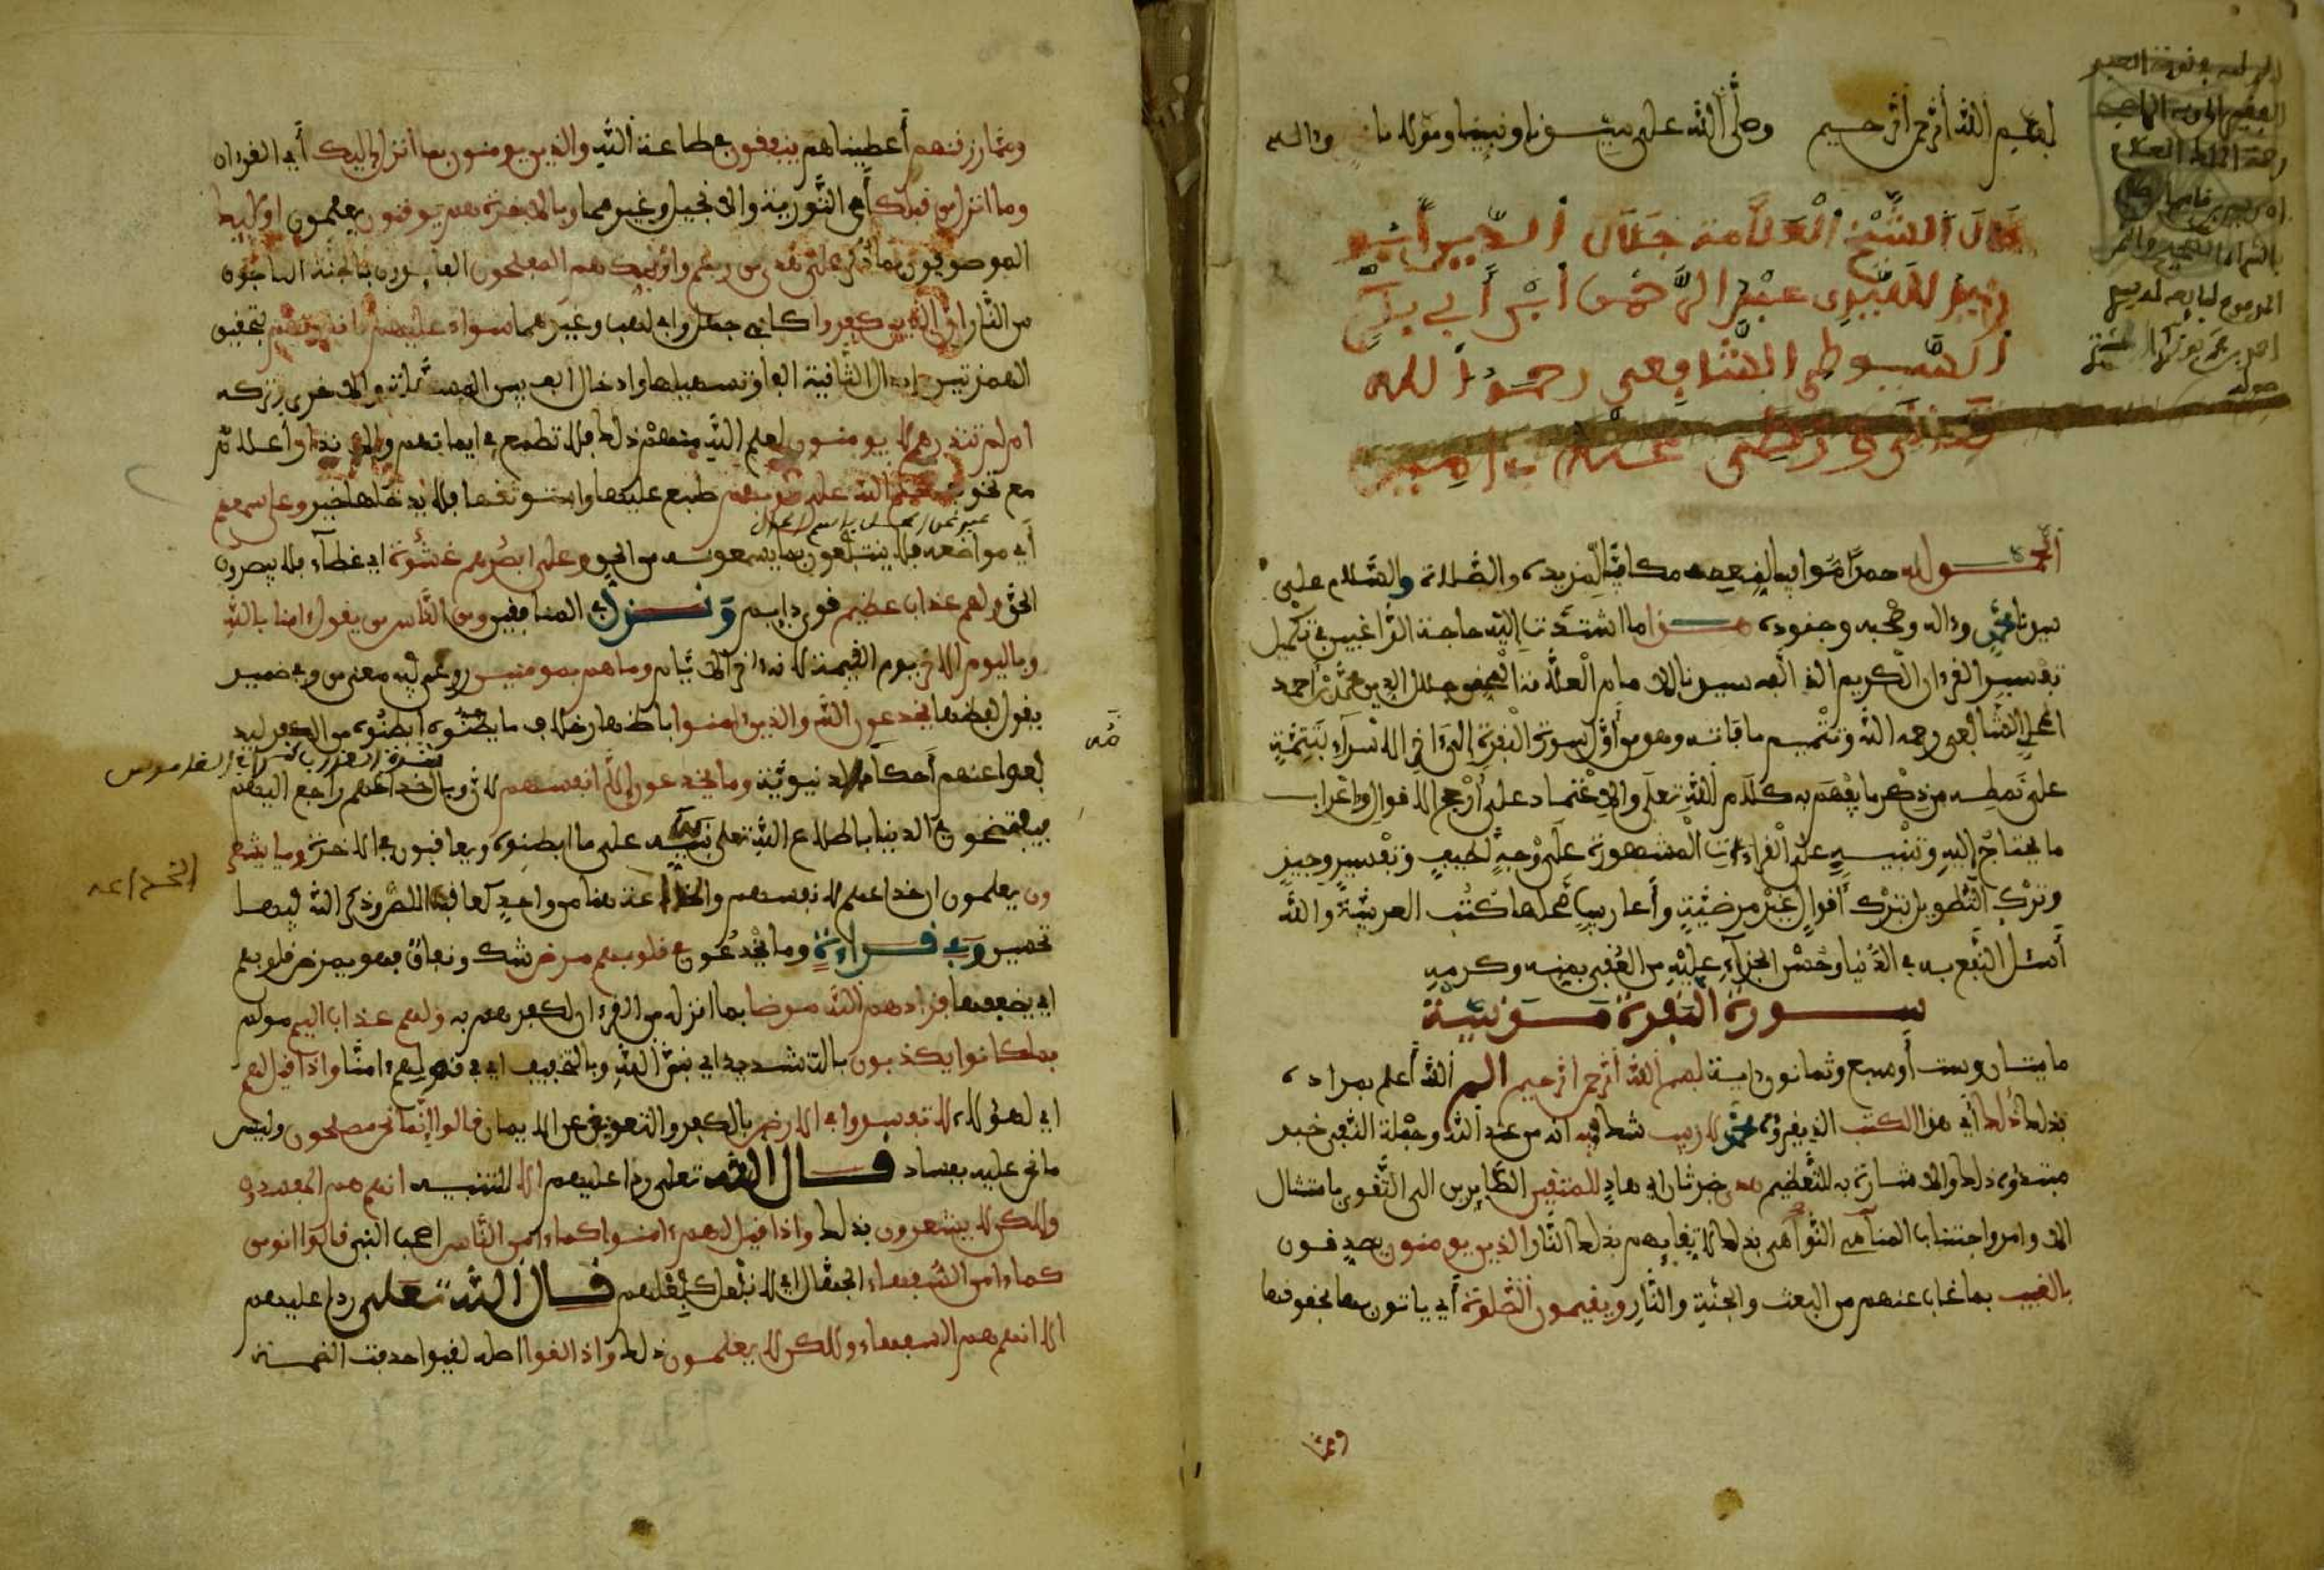 بسم الله الرحمن الرحيم وصلى الله على سيدنا ونبينا ومولانا وءاله
قال الشيخ العلامة جلال الدين أبو
عبد الرحمن ابن أبي بكر
السيوطي الشافعي رحمه الله
ورضي عنه ءامين
الحمد لله حمدا موافيا لنعمه مكافيا لمزيده والصلاة والسلام على
سيدنا محمد وءاله وصحبه وجنوده هذا ما اشتدت إليه حاجة الراغبين في تكميل
تفسير القرءان الكريم الذي ألفه سيدنا الإمام العلامة المحقق جلال الدين محمد بن أحمد
المحلي الشافعي رحمه الله وتتميم ما فاته وهو من أول سورة البقرة إلى ءاخر الاسراء بتتمة
على نمطه من ذكر ما يفهم به كلام الله تعلى والاعتماد على أرجح الاقوال وإعراب
ما يحتاج إليه وتنبيه على القراءات المشهورة على وجه لطيف وتعبير وجيز
وترك التطويل بترك أقوال غير مرضية وأعاريب محلها كتب العربية والله
أسئل النفع به في الدنيا وحسن الجزاء عليه في العقبى بمنه وكرمه
سورة البقرة مدنية
مايتان وست أو سبع وثمانون ءاية بسم الله الرحمن الرحيم الم الله أعلم بمراده
بذلك ذلك أي هذا الكتب الذي يقرؤه محمد لا ريب شك فيه أنه من عند الله وجملة النفي خبر
مبتدؤه ذلك والاشارة به للتعظيم هدى خبر ثان أي هاد للمتقين الصايرين الى التقوى بامتثال
الاوامر واجتناب النواهي لاتقايهم بذلك النار الذين يومنون يصدقون
بالغيب بما غاب عنهم من البعث والجنة والنار ويقيمون الصلوة أي ياتون بها بحقوقها
ومما
ومما رزقنهم أعطيناهم ينفقون في طاعة الله والذين يومنون بما أنزل إليك أي القرءان
وما انزل من قبلك أي التورية والانجيل وغيرهما وبالاخرة هم يوقنون يعلمون اولئك
الموصوفون بما ذكر على هدى من ربهم وأولئك هم المفلحون الفايزون بالجنة الناجون
من النار إن الذين كفروا كأبي جهل وأبي لهب وغيرهما سواء عليهم ءانذرتهم بتحقيق
الهمزتين وإبدال الثانية ألفا وتسهيلها وادخال ألف بين المسهلة والاخرى وتركه
ام لم تنذرهم لا يومنون لعلم الله منهم ذلك فلا تطمع في ايمانهم والانذار إعلام
مع تخويف ختم الله على قلوبهم طبع عليها واستوثق فلا يدخلها خير وعلى سمعهم
أي مواضعه فلا ينتفعون بما يسمعونه من الحق وعلى ابصرهم غشوة اي غطاء فلا يبصرون
الحق ولهم عذاب عظيم قوي دايم ونزل في المنافقين ومن الناس من يقول ءامنا بالله
وباليوم الاخر يوم القيمة لانه ءاخر الايام وما هم بمومنين روعي فيه معنى من وفي ضمير
يقول لفظها يخدعون الله والذين ءامنوا باظهار خلاف ما ابطنوه من الكفر ليد
فعوا عنهم أحكامه الدنيوية وما يخدعون إلا أنفسهم لان وبال خداعهم راجع اليهم
فيفتضحون في الدنيا باطلاع الله تعلى نبيه على ما ابطنوه ويعاقبون في الاخرة وما يشعر
ون يعلمون ان خداعهم لانفسهم والمخادعة هنا من واحد كعاقبت اللص وذكر الله فيها
تحسين وفي قراءة وما يخدعون في قلوبهم مرض شك ونفاق فهو يمرض قلوبهم
اي يضعفها فزادهم الله مرضا بما انزله من القرءان لكفرهم به ولهم عذاب اليم مولم
بما كانوا يكذبون بالتشديد اي نبي الله وبالتخفيف اي في قولهم ءامنا واذا قيل لهم
اي لهؤلاء لا تفسدوا في الارض بالكفر والتعويق عن الايمان قالوا إنما نحن مصلحون وليس
ما نحن عليه بفساد قال الله تعلى ردا عليهم الا للتنبيه انهم هم المفسدون
ولكن لا يشعرون بذلك واذا قيل لهم ءامنوا كما ءامن الناس اصحاب النبي قالوا انومن
كما ءامن السفهاء الجهال اي لا نفعل كفعلهم قال الله تعلى ردا عليهم
الا انهم هم السفهاء ولكن لا يعلمون ذلك واذا لقوا اصله لقيوا حذفت الضمة